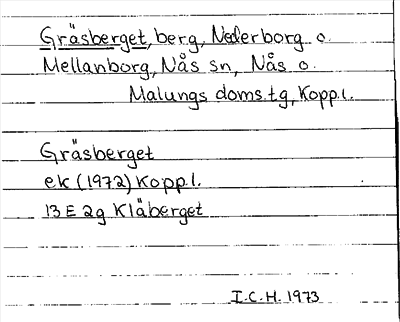 Gräsberget, berg, Nederborg o.
Mellanborg, Nås sn, Nås o.
Malungs doms.tg, Koppl.
Gräsberget
ek (1972) Koppl.
13 E 2g Kläberget
I.C.H. 1973